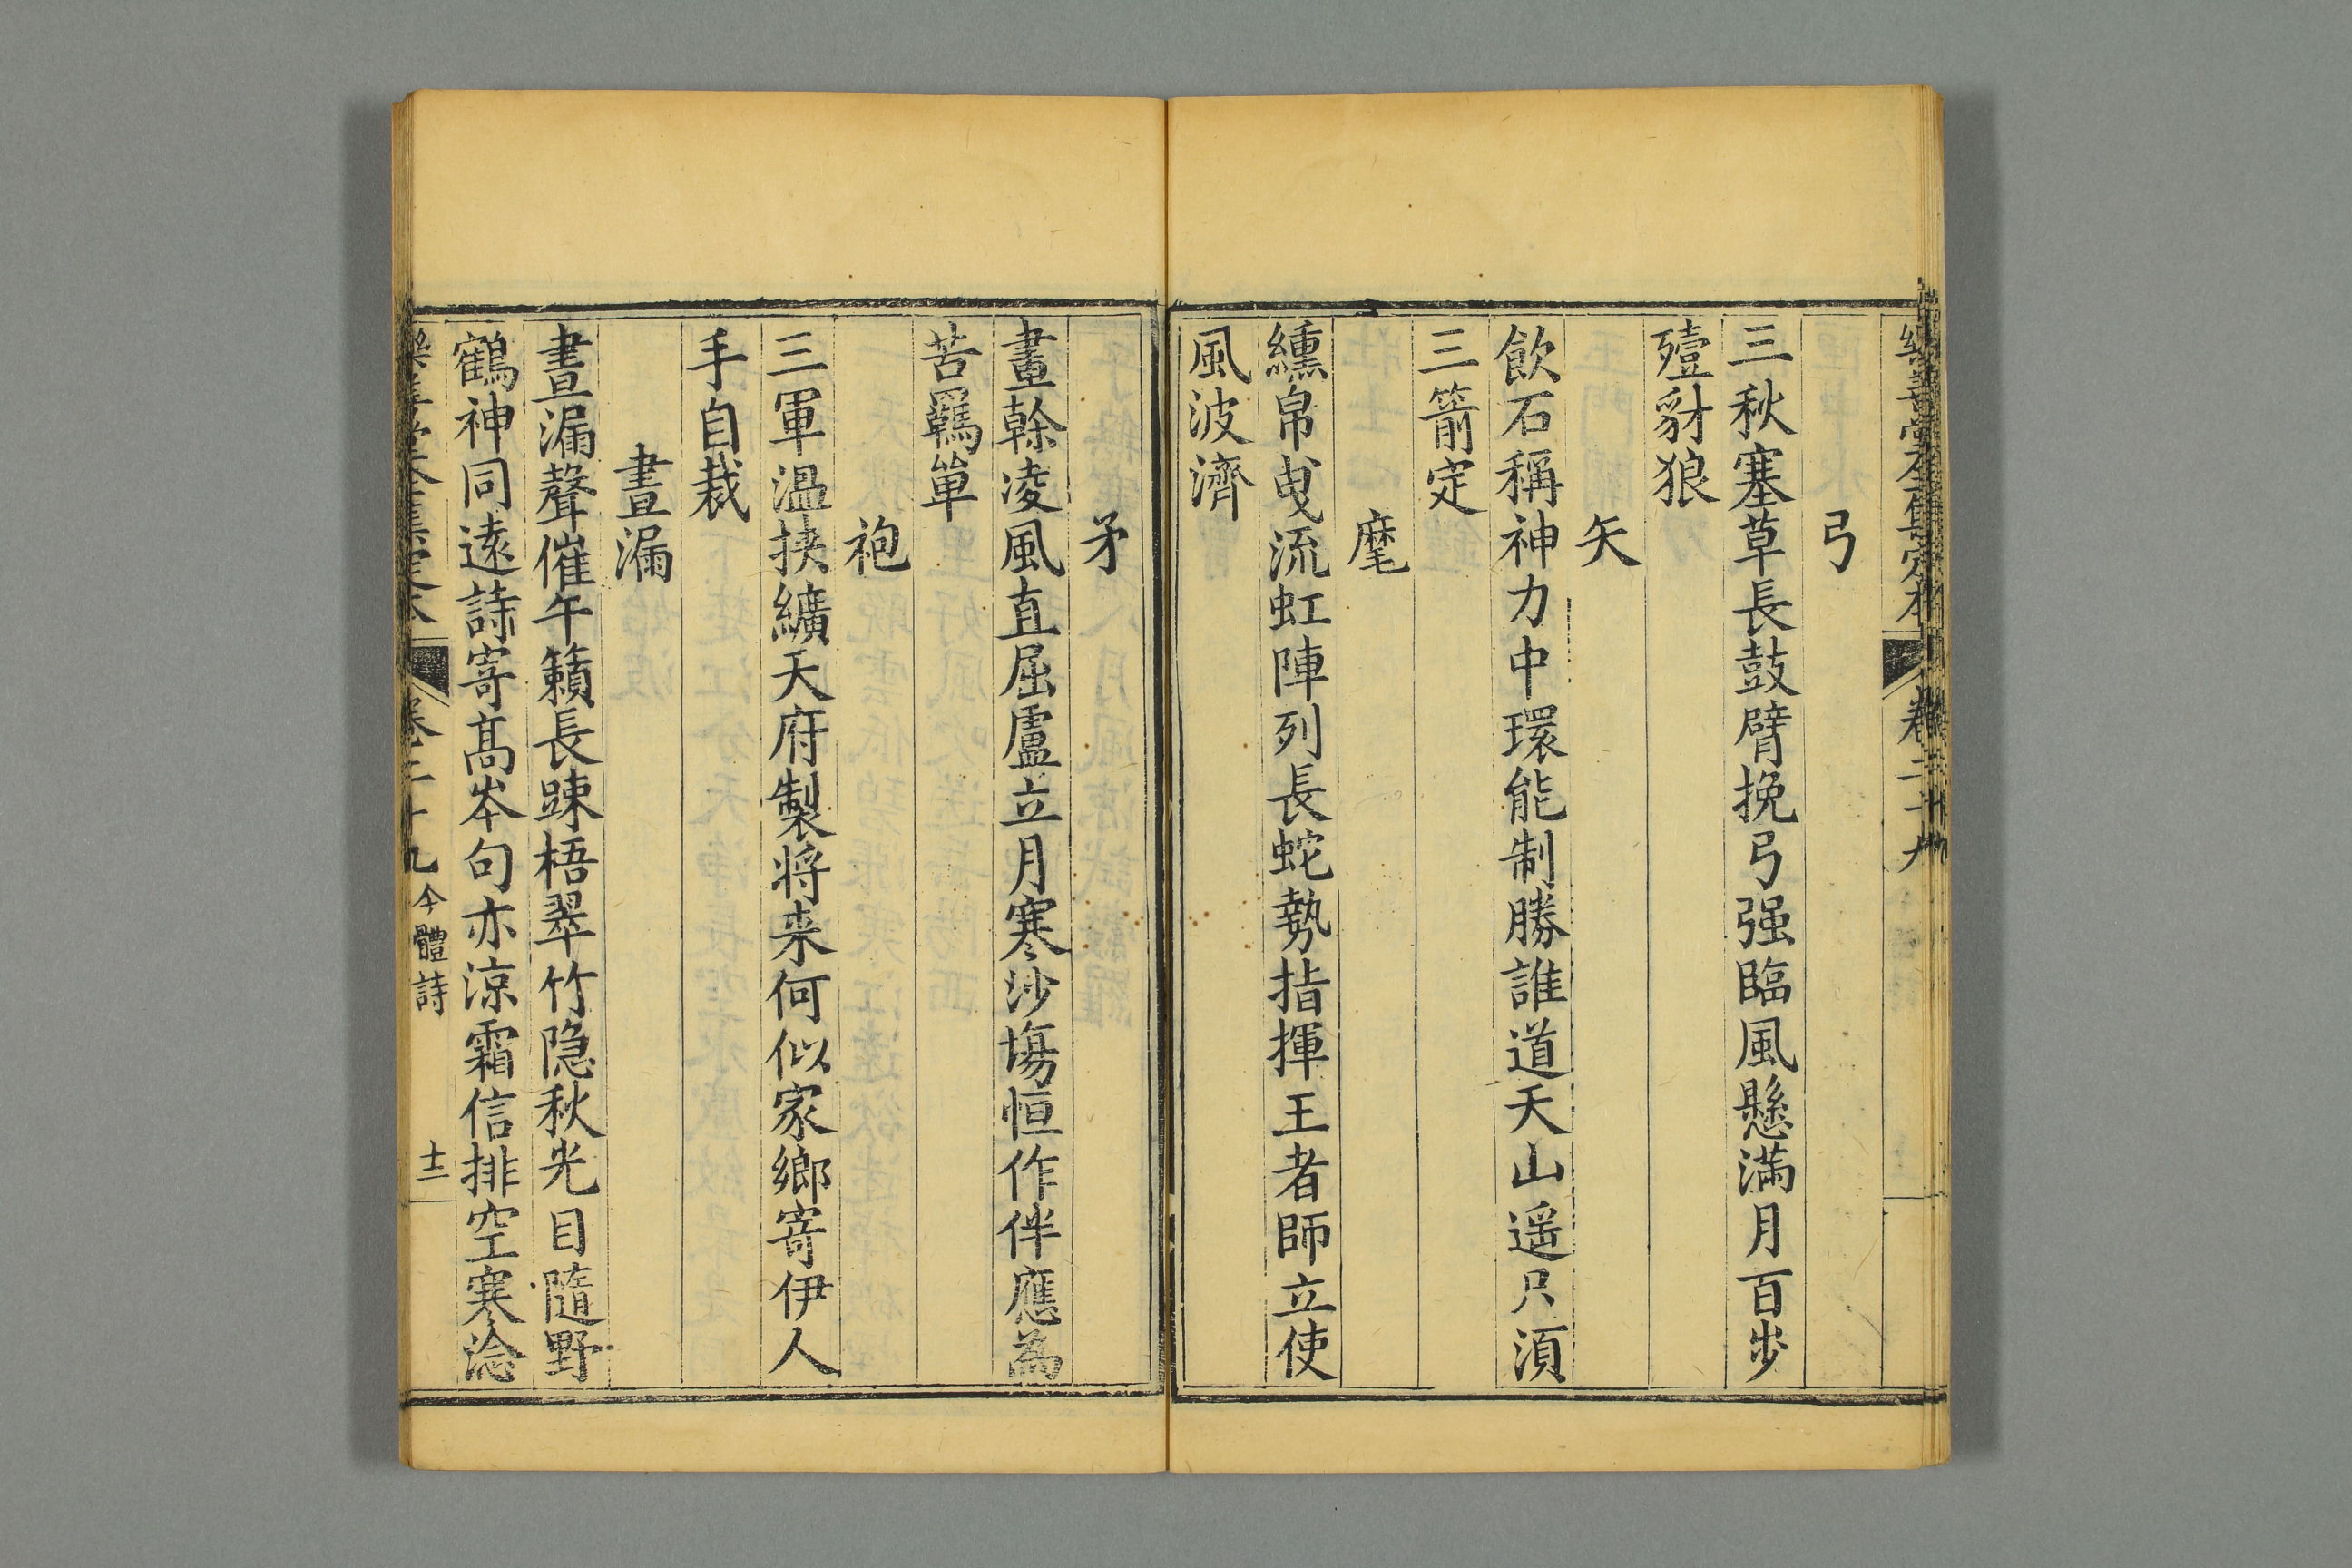 樂善堂全集定本 卷二十九
弓
三秋塞草長鼓臂挽弓强臨風懸滿月百步
殪豺狼
矢
飲石稱神力中環能制勝誰道天山遥只須
三箭定
麾
纁帛曳流虹陣列長蛇勢指揮王者師立使
風波濟
矛
畫榦凌風直屈盧立月寒沙塲恒作伴應為
苦羈單
袍
三軍温挾纊天府製將来何似家鄉寄伊人
手自裁
晝漏
晝漏聲催午籟長踈梧翠竹隐秋光目隨野
鶴神同遠詩寄髙岑句亦涼霜信排空寒淰
樂善堂全集定本 卷二十九 今體詩 十二